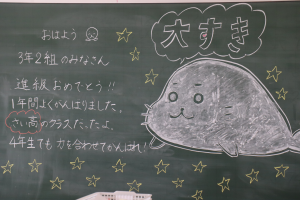 おはよう
3年2組のみなさん
進級おめでとう!!
1年間よくがんばりました。
さい高のクラスだったよ。
4年生でも力を合わせてがんばれ!
大すき